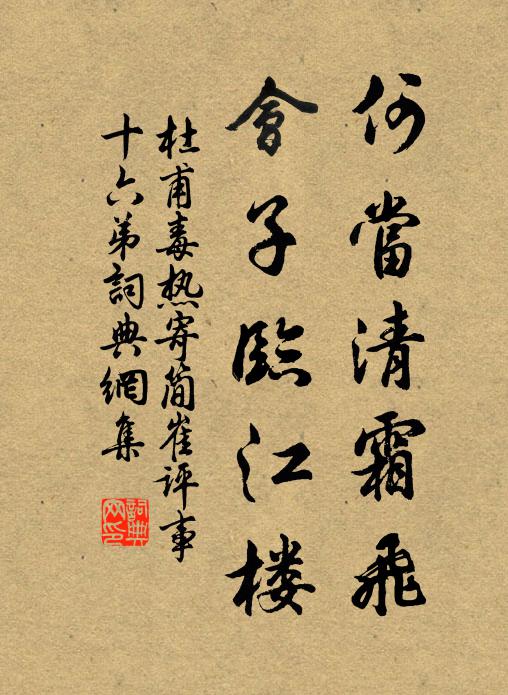 何當清霜飛
會子臨江楼
杜甫毒热寄简崔评事
十六弟詞典網集
詞典网印